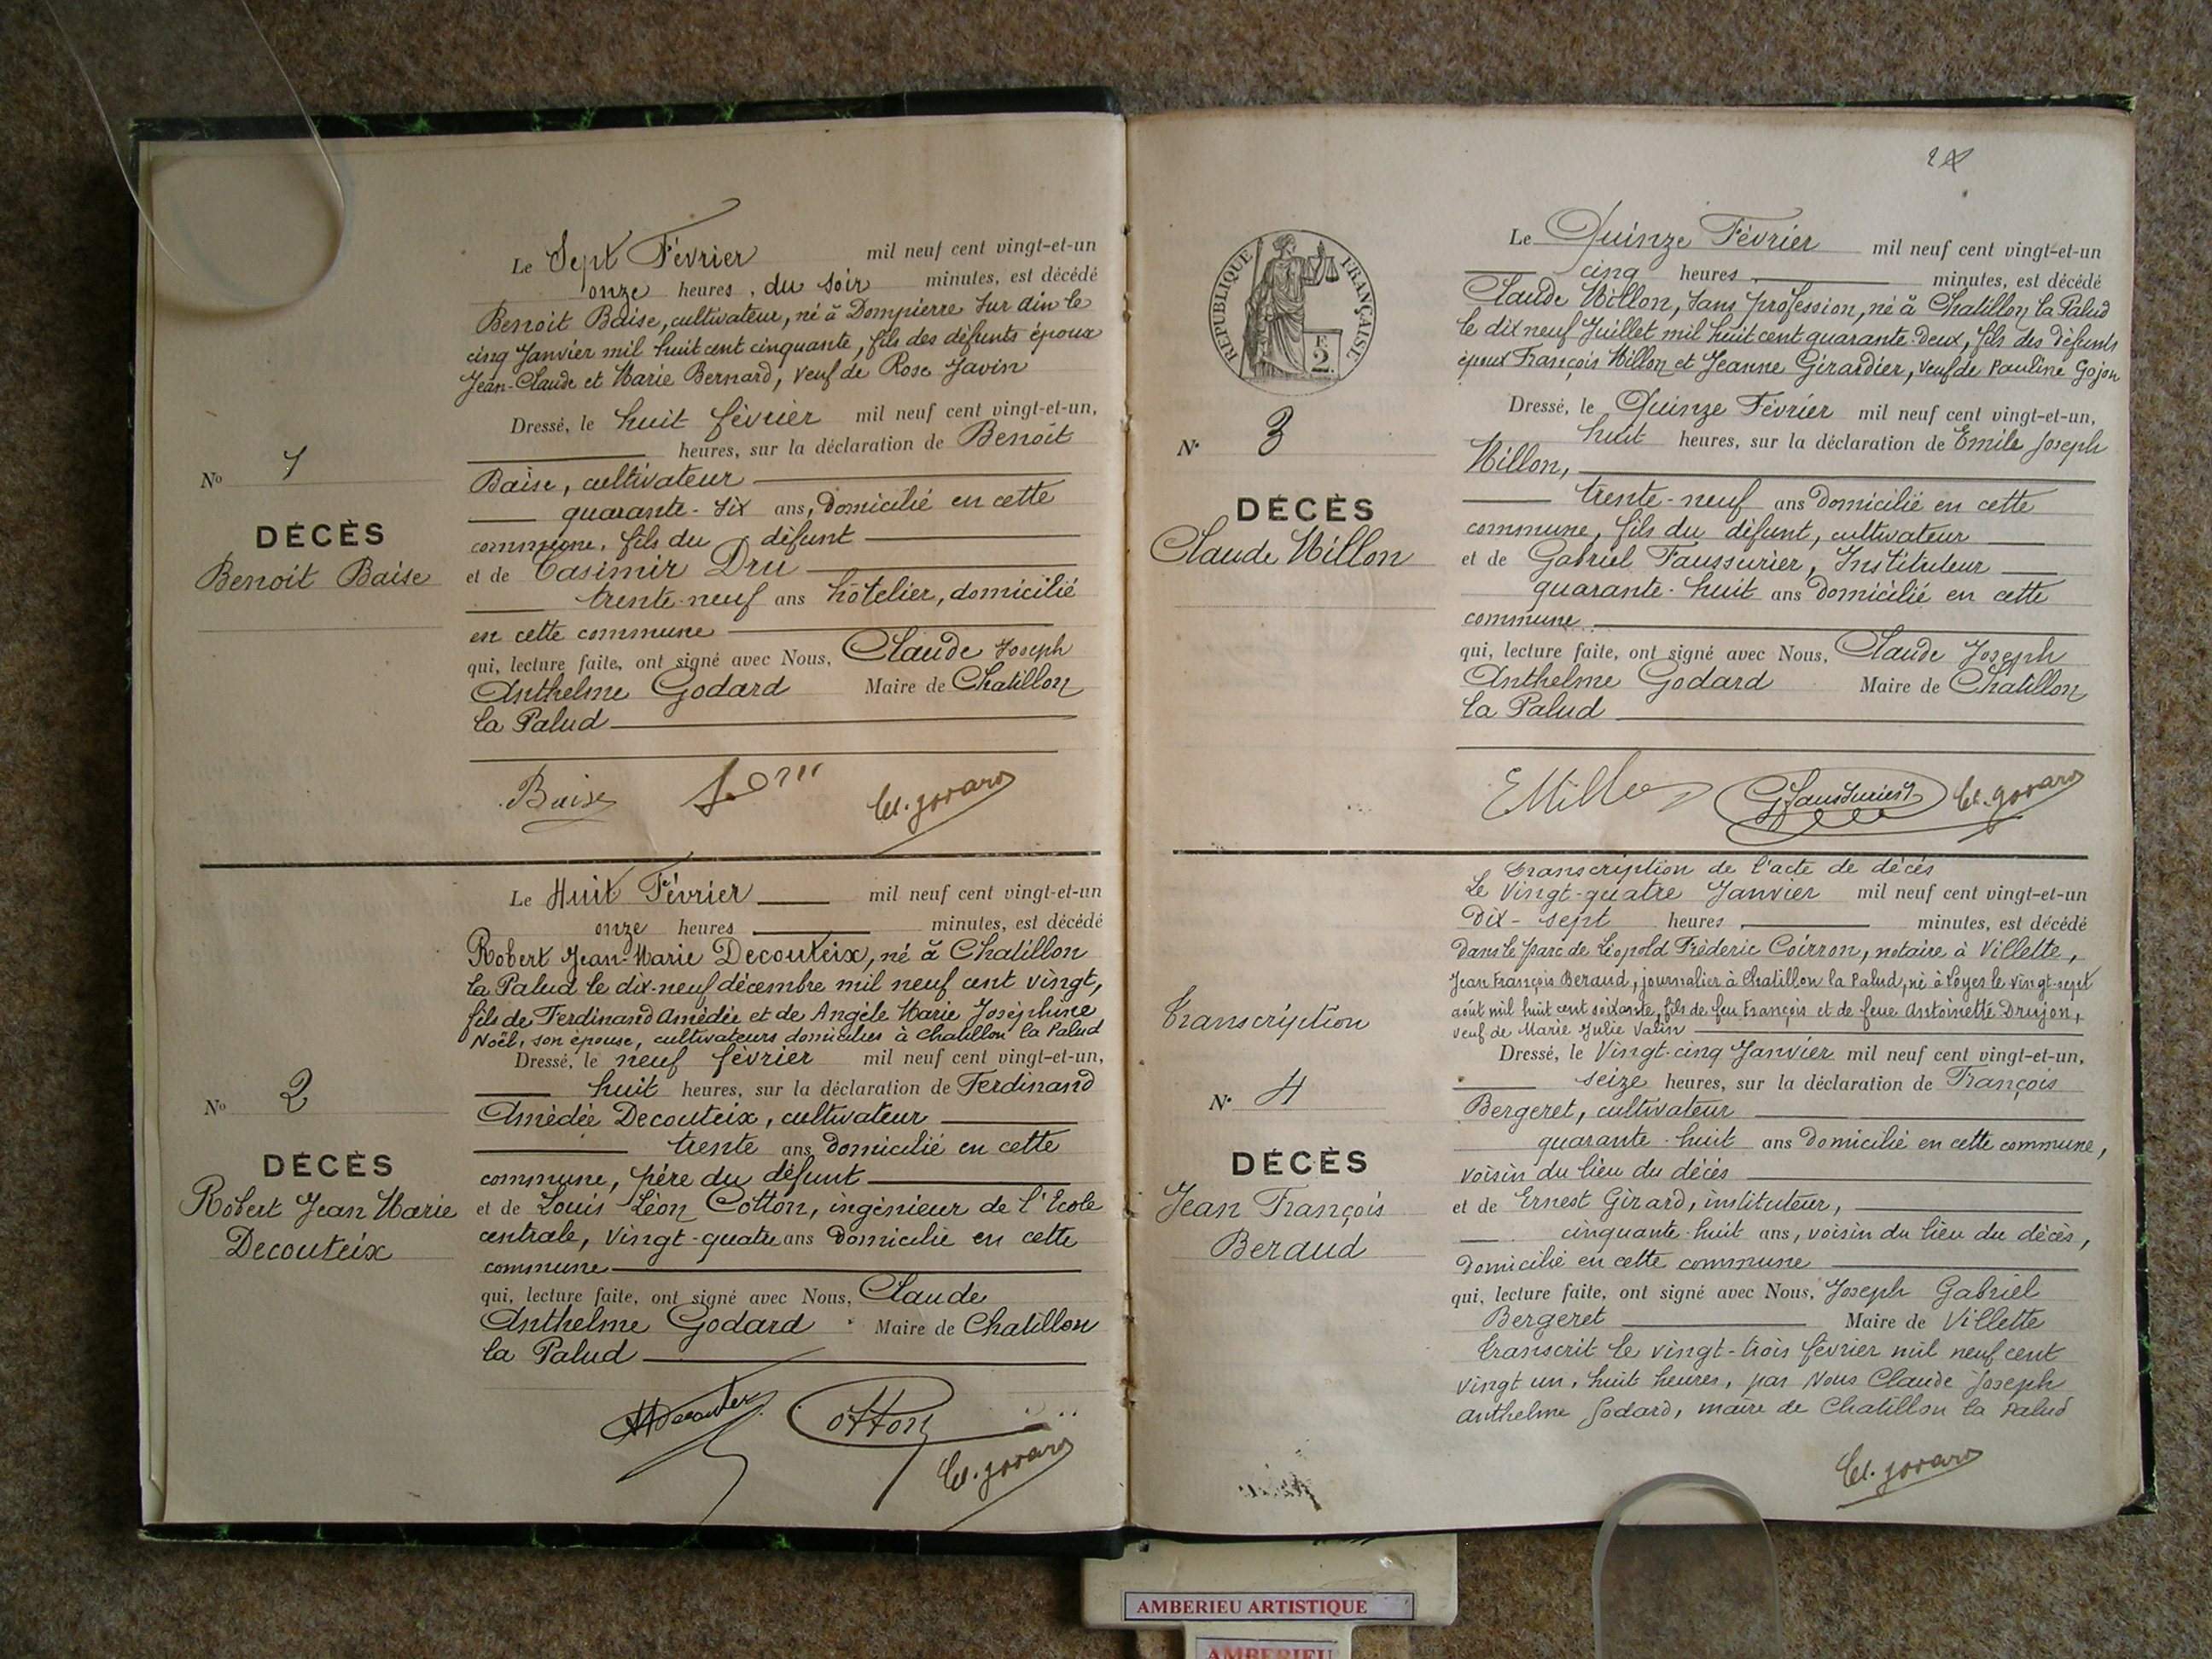 Le Sept Février mil neuf cent vingt-et-un
onze heures, du soir minutes, est décédé
Benoit Baise, cultivateur, né à Dompierre sur din le
cinq Janvier mil huit cent cinquante, fils des défunts époux
Jean-Claude et Marie Bernard, veuf de Rose Javin
Dressé, le huit février mil neuf cent vingt-et-un,
heures, sur la déclaration de Benoit
Baise, cultivateur
quarante-six ans, domicilié en cette
commune, fils du défunt
et de Casimir Dru
trente-neuf ans hôtelier, domicilié
en cette commune
qui, lecture faite, ont signé avec Nous, Claude Joseph
Anthelme Godard Maire de Chatillon
la Palud
Baise
Cl. Godard
No 1
DÉCÈS
Benoit Baise
Le Huit Février mil neuf cent vingt-et-un
onze heures minutes, est décédé
Robert Jean-Marie Decouteix, né à Chatillon
la Palud le dix-neuf décembre mil neuf cent vingt,
fils de Ferdinand Amédée et de Angèle Marie Joséphine
Noël, son épouse, cultivateurs domiciliés à Chatillon la Palud
Dressé, le neuf février mil neuf cent vingt-et-un,
huit heures, sur la déclaration de Ferdinand
Amédée Decouteix, cultivateur
trente ans domicilié en cette
commune, père du défunt
et de Louis Léon Cotton, ingénieur de l'Ecole
centrale, vingt-quatre ans domicilié en cette
commune
qui, lecture faite, ont signé avec Nous, Claude
Anthelme Godard Maire de Chatillon
la Palud
Cotton
Cl. Godard
No 2
DÉCÈS
Robert Jean Marie
Decouteix
RÉPUBLIQUE FRANÇAISE
E
2
Le Quinze Février mil neuf cent vingt-et-un
cinq heures minutes, est décédé
Claude Millon, sans profession, né à Chatillon la Palud
le dix neuf Juillet mil huit cent quarante-deux, fils des défunts
époux François Millon et Jeanne Girardier, veuf de Pauline Gojon
Dressé, le Quinze Février mil neuf cent vingt-et-un,
huit heures, sur la déclaration de Emile Joseph
Millon,
trente-neuf ans domicilié en cette
commune, fils du défunt, cultivateur
et de Gabriel Faussurier, Instituteur
quarante-huit ans domicilié en cette
commune
qui, lecture faite, ont signé avec Nous, Claude Joseph
Anthelme Godard Maire de Chatillon
la Palud
E Millon G Faussurier Cl. Godard
No 3
DÉCÈS
Claude Millon
Transcription de l'acte de décès
Le Vingt-quatre Janvier mil neuf cent vingt-et-un
Dix-sept heures minutes, est décédé
dans le parc de Léopold Fréderic Coirron, notaire à Villette,
Jean François Beraud, journalier à Chatillon la Palud, né à Loyes le vingt-sept
août mil huit cent soixante, fils de feu François et de feue Antoinette Drujon,
veuf de Marie Julie Valin
Dressé, le Vingt-cinq Janvier mil neuf cent vingt-et-un,
seize heures, sur la déclaration de François
Bergeret, cultivateur
quarante-huit ans domicilié en cette commune,
voisin du lieu du décès
et de Ernest Girard, instituteur,
cinquante-huit ans, voisin du lieu du décès,
domicilié en cette commune
qui, lecture faite, ont signé avec Nous, Joseph Gabriel
Bergeret Maire de Villette
transcrit le vingt-trois février mil neuf cent
vingt un, huit heures, par Nous Claude Joseph
anthelme Godard, maire de Chatillon la Palud
Cl. Godard
Transcription
No 4
DÉCÈS
Jean François
Beraud
AMBERIEU ARTISTIQUE
AMBERIEU